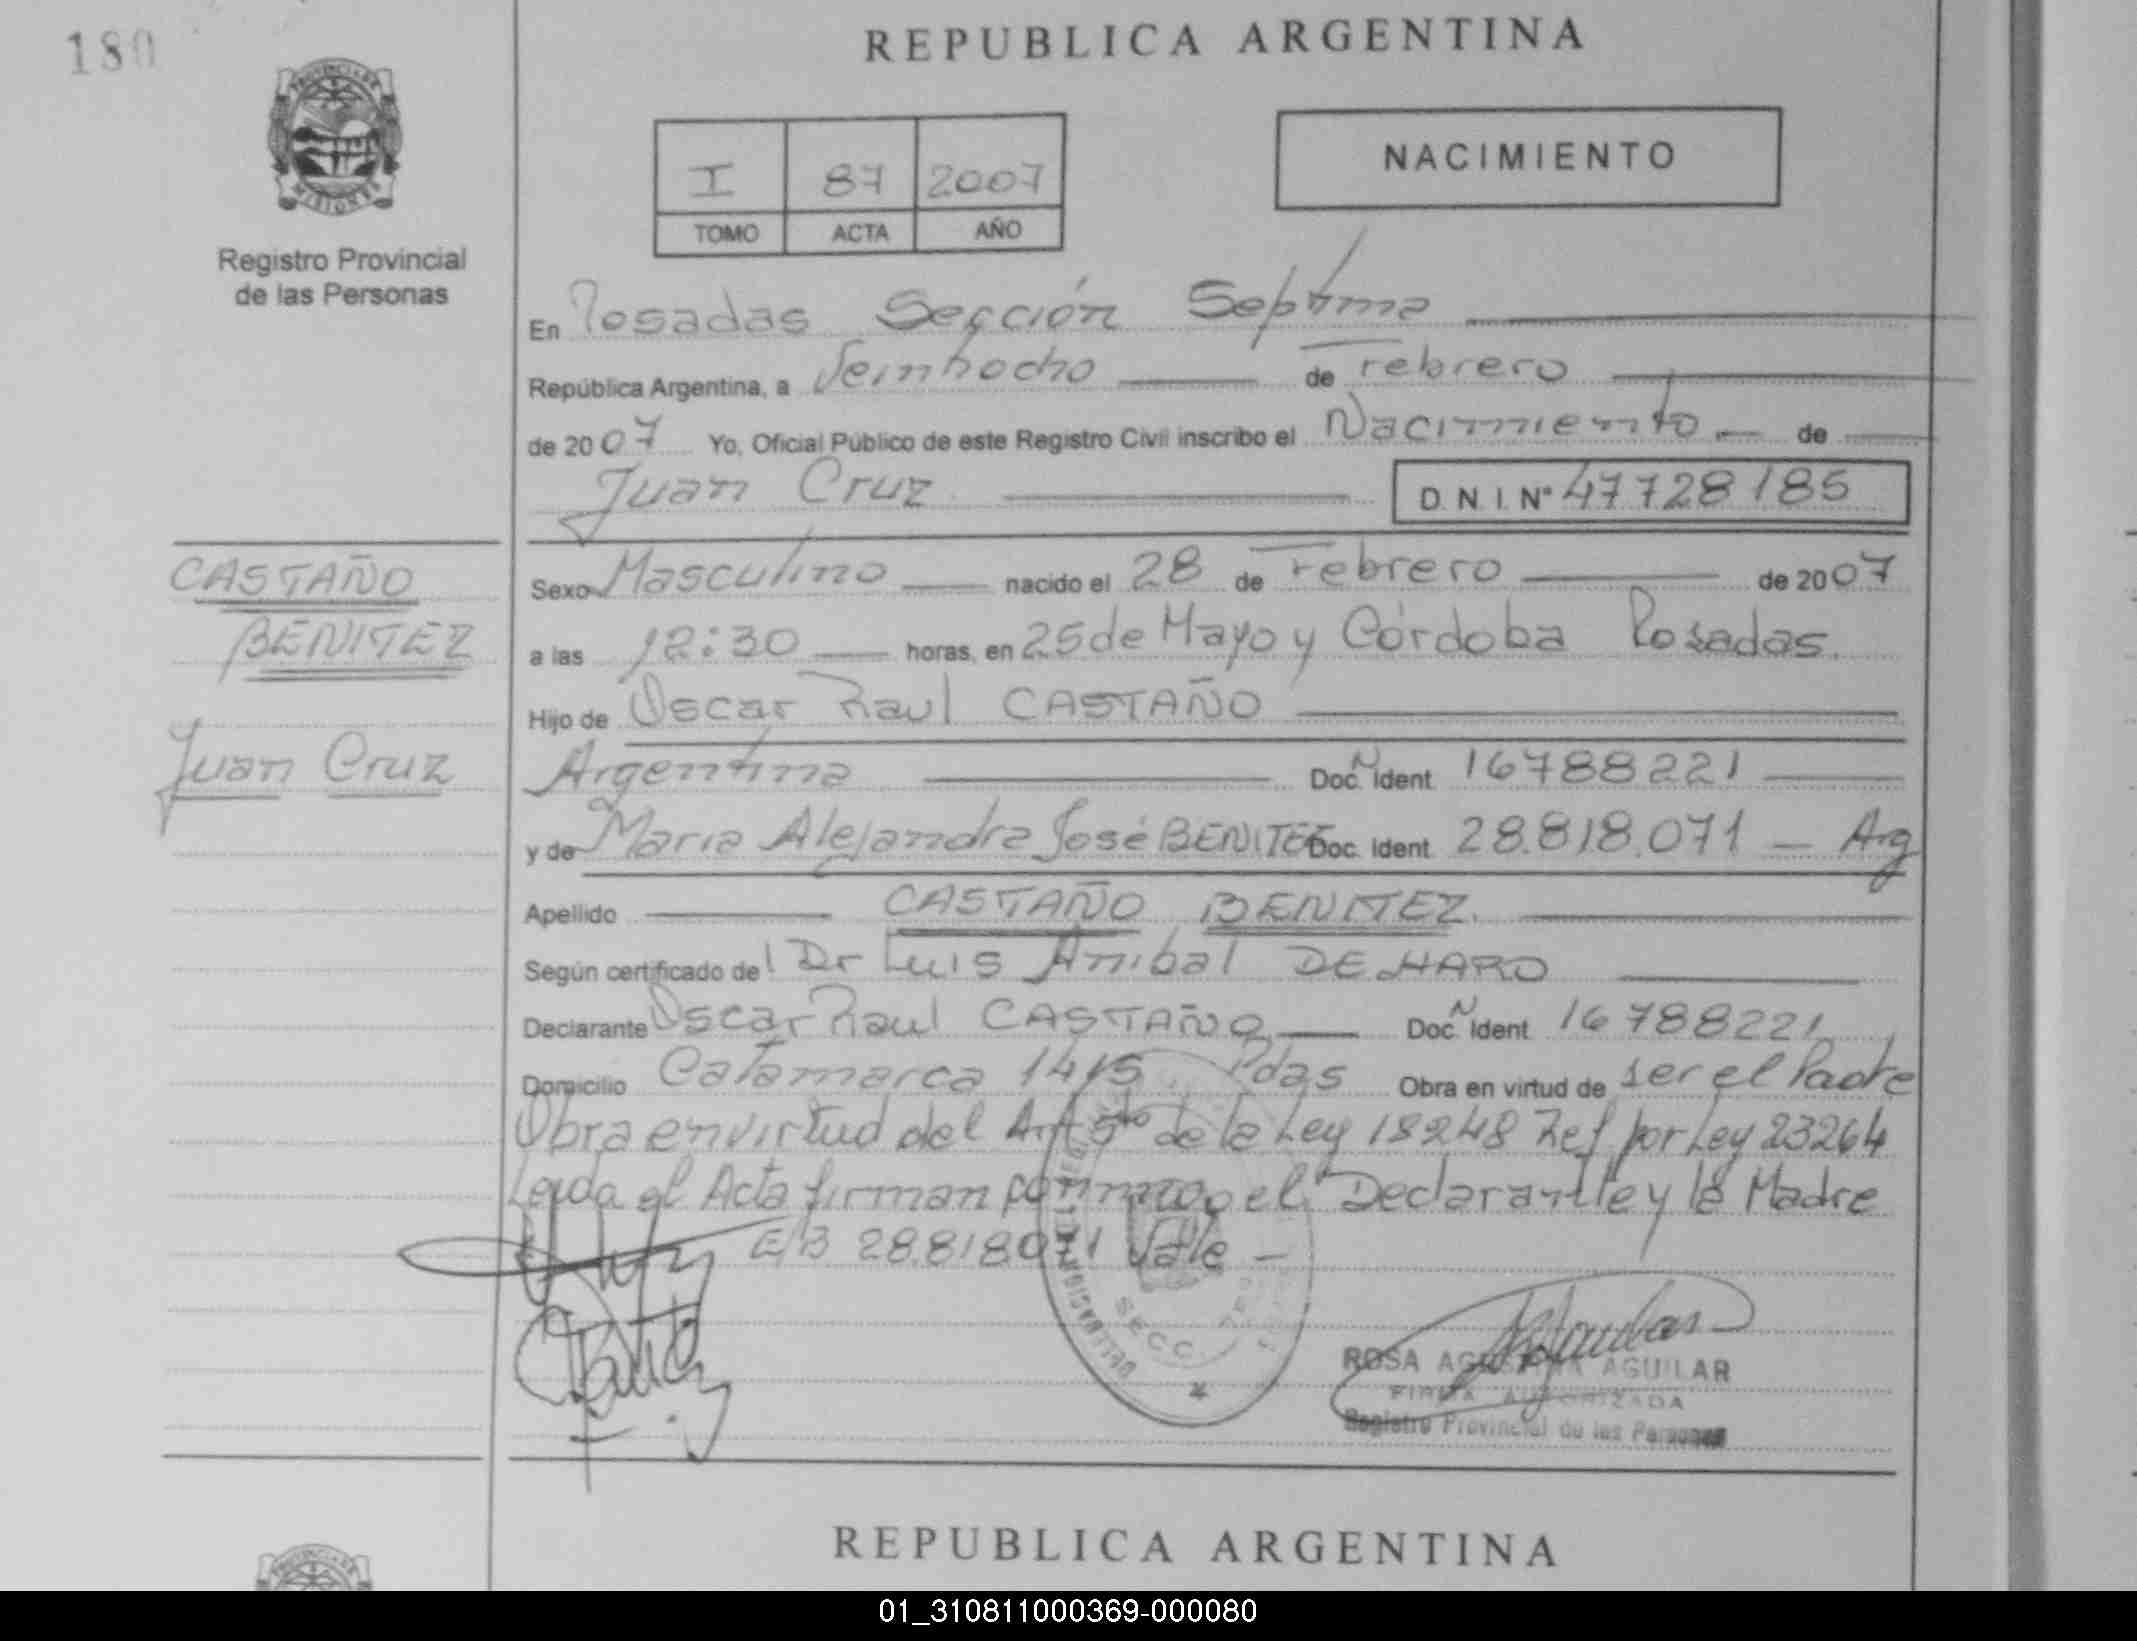 180
REPUBLICA ARGENTINA
PROVINCIA DE
MISIONES
Registro Provincial
de las Personas
I 87 2007
TOMO ACTA AÑO
NACIMIENTO
En Posadas Sección Septima
República Argentina, a Veintiocho de Febrero
de 2007 Yo, Oficial Público de este Registro Civil inscribo el Nacimiento de
Juan Cruz D.N.I. Nº 47728185
CASTAÑO
BENITEZ
Juan Cruz
Sexo Masculino nacido el 28 de Febrero de 2007
a las 12:30 horas, en 25 de Mayo y Córdoba Posadas.
Hijo de Oscar Raul CASTAÑO
Argentina Doc. Ident. 16788221
y de Maria Alejandra José BENITEZ Doc. Ident. 28.818.071 — Arg
Apellido CASTAÑO BENITEZ.
Según certificado del Dr Luis Anibal DE HARO
Declarante Oscar Raul CASTAÑO Doc. Ident. 16788221
Domicilio Catamarca 1415 Pdas Obra en virtud de ser el Padre
Obra en virtud del Art 5to de la Ley 18248 Ref por Ley 23264
Leida el Acta firman conmigo el Declarante y la Madre
E/B 28.818071 Vale —
DELEGACION
SECC.
ROSA AGUILAR
FIRMA AUTORIZADA
Registro Provincial de las Personas
REPUBLICA ARGENTINA
PROVINCIA DE
01_310811000369-000080